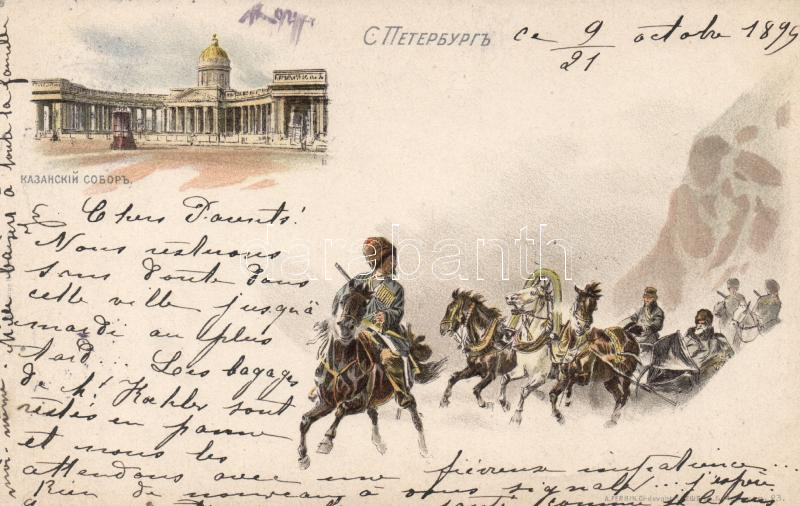 С. ПЕТЕРБУРГЪ
ce 9/21 octobre 189
КАЗАНСКІЙ СОБОРЪ.
Chers Parents!
Nous resterons
sans doute dans
cette ville jusqu'à
mardi au plus
tard... Les bagages
de M! Koehler sont
restés en panne
et nous les
attendons avec une fiévreuse impatience...
Rien de nouveau à vous signaler...
Mille baisers à toute la famille
darabanth